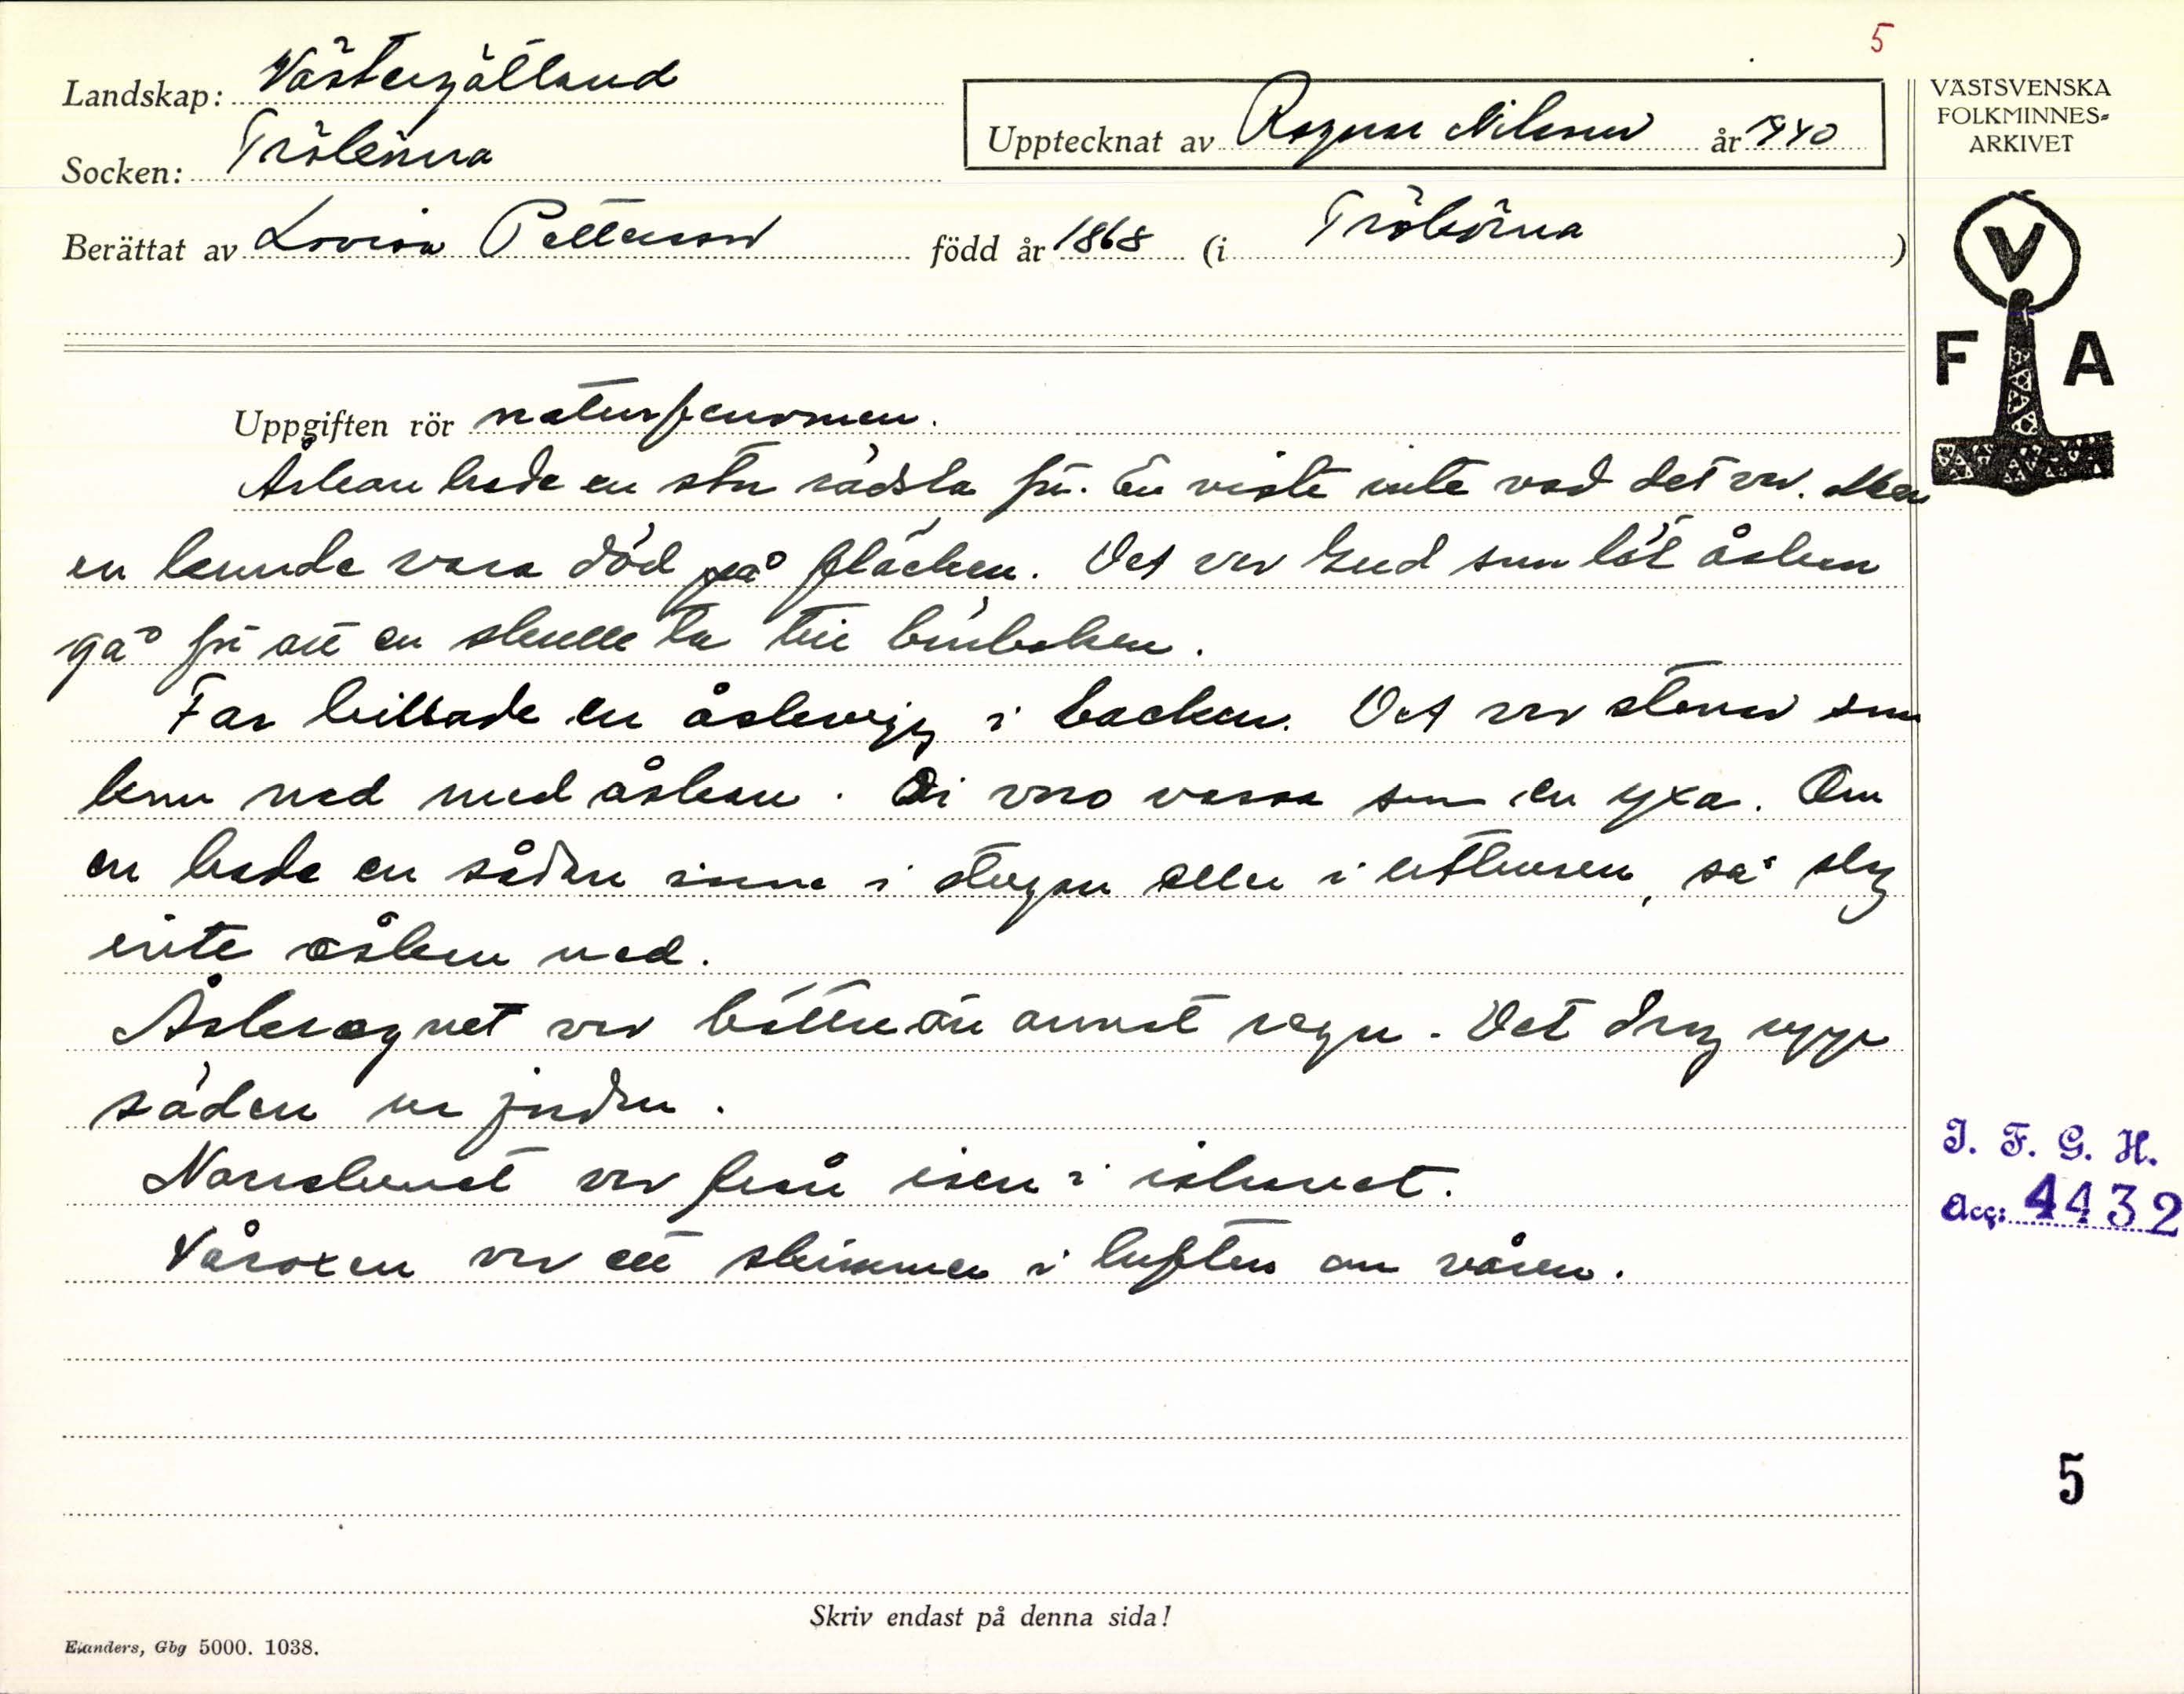 5
Landskap: Västergötland
Socken: Trökörna
Upptecknat av Ragnar Nilsson år 1940
VÄSTSVENSKA
FOLKMINNES-
ARKIVET
Berättat av Lovisa Pettersson född år 1868 (i Trökörna)
V
F A
Uppgiften rör naturfenomen.
Åskan hade en stor rädsla för. En viste inte vad det var. Men
en kunde vara död på fläcken. Det var Gud som lät åskan
gå för att en skulle ta till bönboken.
Far hittade en åskvigg i backen. Det var stenar som
kom ned med åskan. Di voro vassa som en yxa. Om
en hade en sådan inne i stugan eller i uthusen, så slog
inte åskan ned.
Åskregnet var bättre än annat regn. Det drog upp
säden ur jorden.
Norrskenet var från isen i ishavet.
Våroxen var ett skimmer i luften om våren.
I. F. G. H.
Acc: 4432
5
Skriv endast på denna sida!
Elanders, Gbg 5000. 1038.